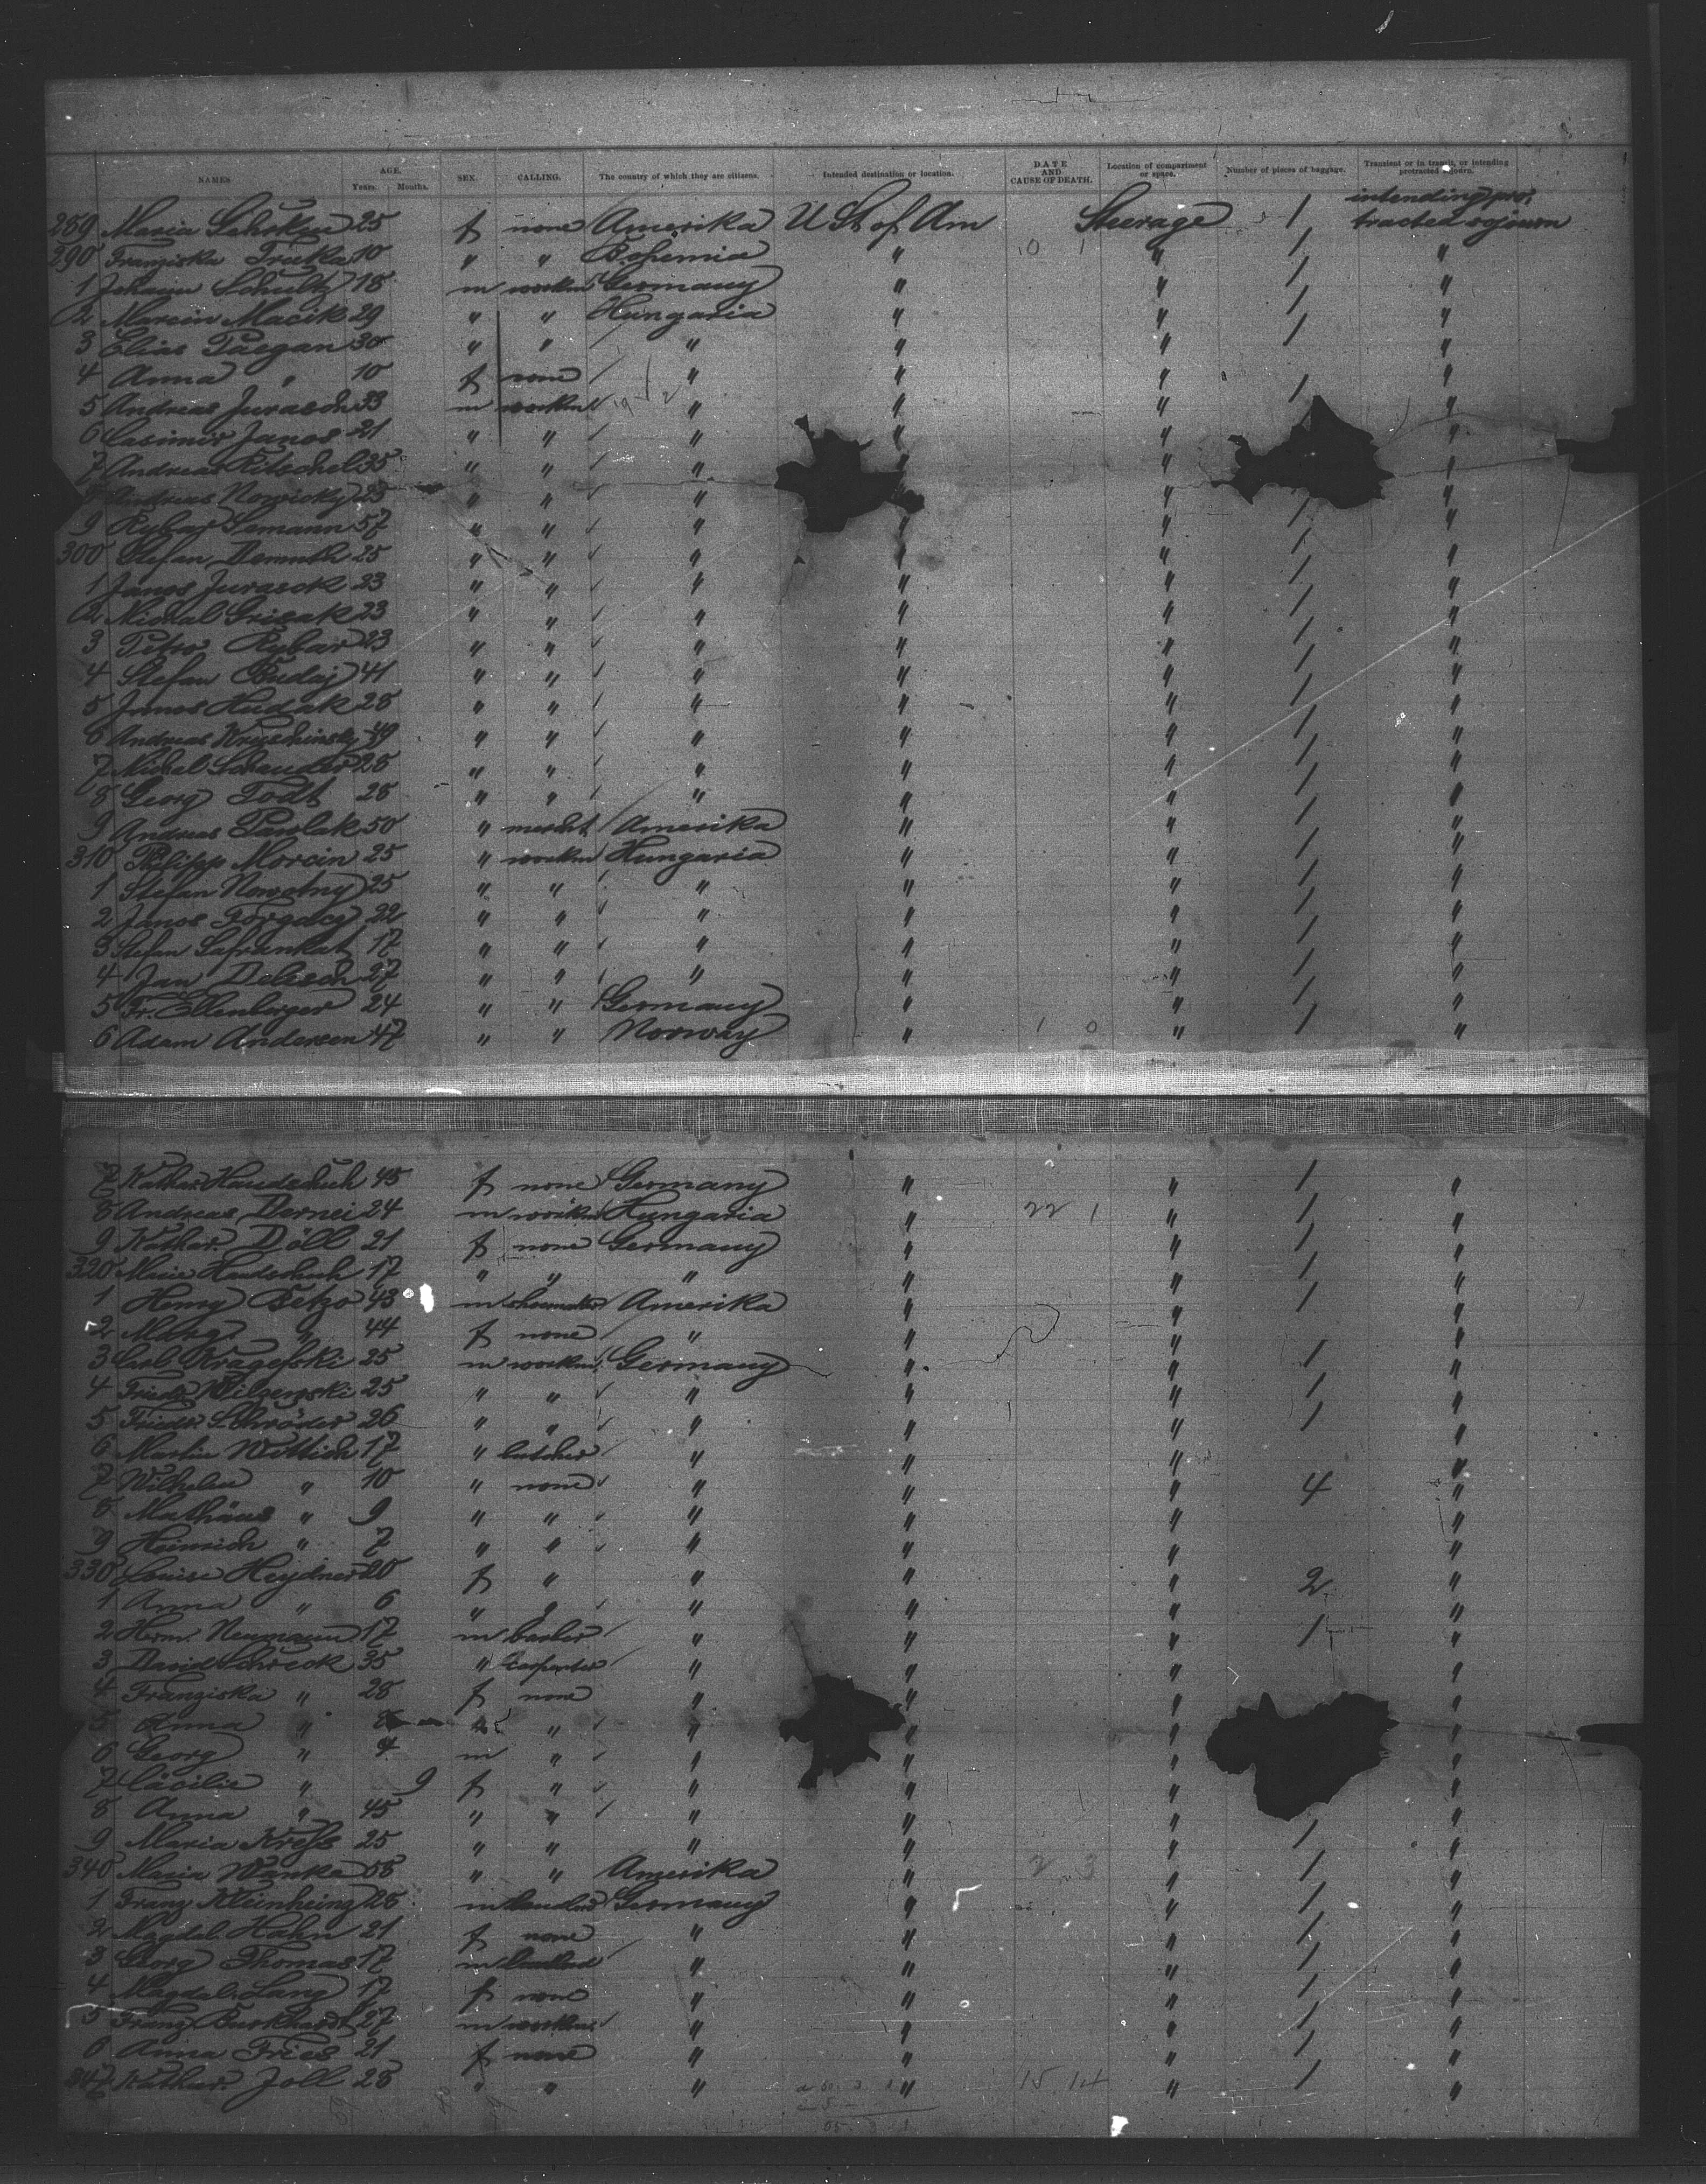 NAMES AGE. Years. Months. SEX. CALLING. The country of which they are citizens. Intended destination or location. DATE AND CAUSE OF DEATH. Location of compartment or space. Number of pieces of baggage. Transient or in transit, or intending protracted sojourn.
intending pro
289 Maria 25 f none Amerika U St of Am Steerage 1 tracted sojourn
290 Franziska 10 " " Bohemia " 10 1 " 1 "
1 Johann Schultz 18 m worken Germany " " 1 "
2 Marcin Macik 29 " " Hungaria " " 1 "
3 Elias 30 " " " " " 1 "
4 Anna " 10 f none " " " "
5 Andreas 33 m worken " " " 1 "
6 Casimir Janos 21 " " " " " "
7 Andreas Kitschel 35 " " " " "
Andreas Nowicky 25 " " " " "
9 Rybar 57 " " " " " 1 "
300 Stefan Demuth 25 " " " " " 1 "
1 Janos Jurasek 23 " " " " " 1 "
2 Michal Grisak 23 " " " " " 1 "
3 Petro Rybar 23 " " " " " 1 "
4 Stefan Budaj 41 " " " " " 1 "
5 Janos Hudak 28 " " " " " 1 "
6 Andreas 49 " " " " " 1 "
7 Michal 28 " " " " " 1 "
8 Georg Todt 28 " " " " " 1 "
9 Andreas Pawlak 50 " mercht Amerika " " 1 "
310 Philipp Morcin 25 " worken Hungaria " " 1 "
1 Stefan Nowotny 25 " " " " " 1 "
2 Janos Forgacz 22 " " " " " 1 "
3 Stefan 17 " " " " " 1 "
4 Jan 27 " " " " " 1 "
5 Fr. Ellenberger 24 " " Germany " " 1 "
6 Adam Andersen 47 " " Norway " 1 0 " 1 "
7 Kathar. Handschuh 45 f none Germany " " 1 "
8 Andreas Dernei 24 m worken Hungaria " 22 1 " 1 "
9 Kathar. Döll 21 f none Germany " " 1 "
320 Marie Handschuh 17 " " " " " 1 "
1 Henry Betzo 43 m shoemaker Amerika " " 1 "
2 Marg. " 44 f none " " " "
3 Carl 25 m worken Germany " " 1 "
4 Friedr. 25 " " " " " 1 "
5 Friedr. Schröder 26 " " " " " 1 "
6 Martin Wittich 17 " butcher " " " "
7 Wilhelm " 10 " none " " " 4 "
8 Mathäus " 9 " " " " " "
9 Heinrich " 7 " " " " " "
330 Louise Heydner 20 f " " " " 2 "
1 Anna " 6 " " " " " "
2 Herm. Neumann 17 m barber " " " 1 "
3 David Schreck 35 " carpenter " " " "
4 Franziska " 28 f none " " " "
5 Anna " " " " " "
6 Georg " 4 m " " " "
7 Cäcilie " 9 f " " " " "
8 Anna " 45 " " " " " "
9 Maria Kreß 25 " " " " " 1 "
340 Maria Wanka 58 " " Amerika " 2 3 " 1 "
1 Franz Kleinheinz 28 m Germany " " 1 "
2 Magdal. Hahn 21 f none " " " 1 "
3 Georg Thomas 17 m " " " 1 "
4 Magdal. Lang 17 f none " " " 1 "
5 Franz Burkhardt 27 m worken " " " 1 "
6 Anna Fries 21 f none " " " 1 "
347 Kathar. Joll 28 " " " " 15 14 " 1 "